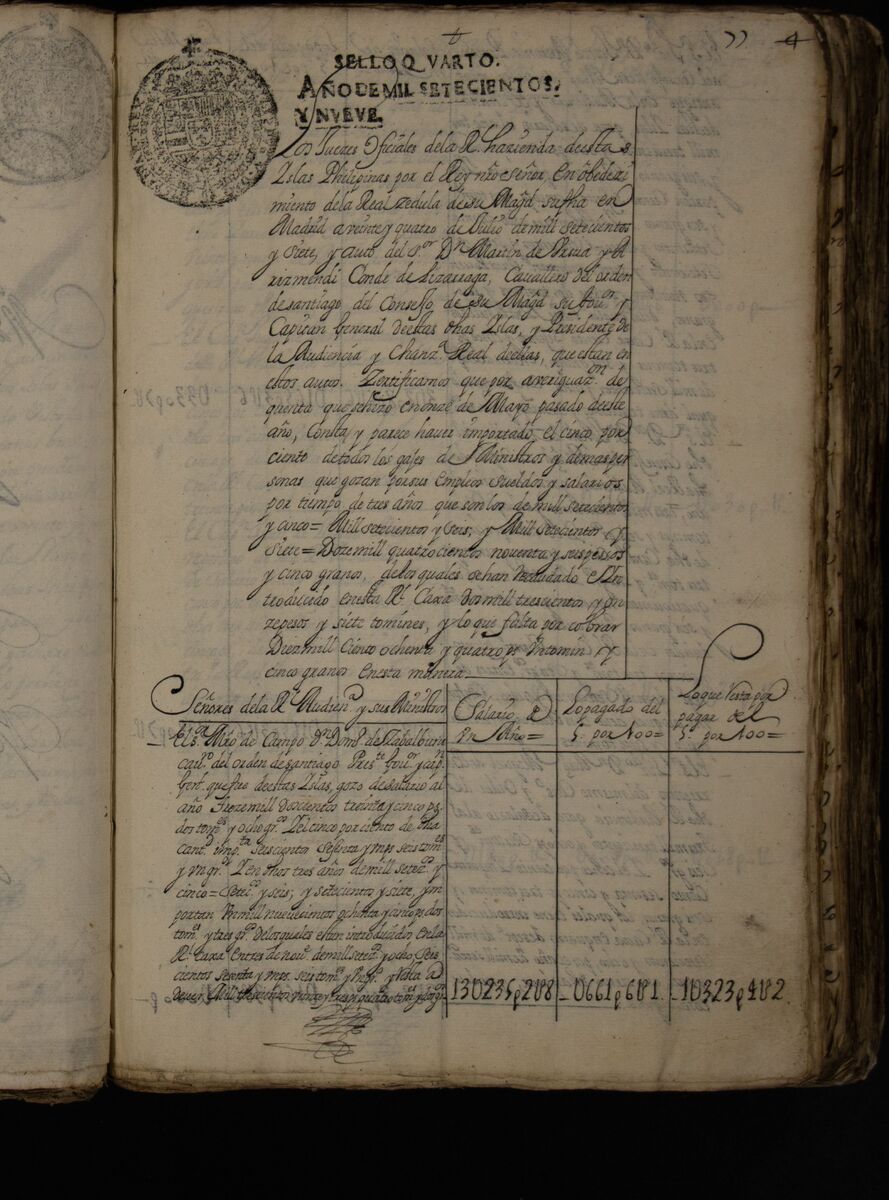 77 4
SELLO QVARTO.
AÑO DE MIL SETECIENTOS,
Y NVEVE.
Los Juezes Ofiçiales dela Rl. hazienda destas
Yslas Philipinas por el Rey nrõ señor En obedeci
miento dela Real zedula de su Magd. su fha en
Madrid a veinte y quatro de Julio de mill setecientos
y siete, y auto del sor. Dn. Martin de Vrsua y A
rizmendi Conde de Lizarraga, Cauallero del orden
de santiago, del Consejo de su Magd su Gouor. y
Capitan General destas dhas Yslas, y Presidente de
la Audiencia y Chanza. Real dellas, que estan en
estos autos. Zertificamos que por aueriguazon. de
quenta que se hizo en onze de Mayo pasado deste
año, Consta, y parece hauer importado, el cinco por
ciento de todos los gajes de Ministros y demas per
sonas que gozan por sus empleos sueldos y salarios
por tiempo de tres años que son los de mill setecientos
y cinco= Mill setecientos y seis, y Mill setecientos y
siete= Doze mill quatrocientos nouenta y seis pessos
y cinco granos, delos quales se han enterado e Yn
troducido en esta Rl. Caxa Dos mill trescientos y on
ze pesos y siete tomines, y lo que falta por cobrar
Diez mill ciento ochenta y quatro ps Vn tomin y
cinco granos en esta manera
Señores dela Rl Audiena. y sus Ministros
Salario de
Vn Año=
Lo pagado del
5. por 100=
Lo que resta por
pagar del
5. por 100=
El sr. Mrõ de Campo Dn. Domo. de Zabalburu
cauo. del orden de santiago Preste. Gour. y cap.
Genl. que fue destas Yslas, gozo de salario al
año Treze mill Doscientos treinta y cinco ps.
dos tomes. y ocho gros. Y el cinco por ciento de dha
cantd. impta. seiscientos sesenta y vn ps. seis tomes
y vn gro. Y en dhos tres años de mill setezos. y
cinco= setezos. y seis, y setecientos y siete, ym
portan Vn mill nueuecientos ochenta y cinco ps dos
tomes. y tres gs. de los quales estan introducidos en la
Rl. caxa en tres de noue. de mill setezos. y ocho, seis
cientos sesenta y vn ps. seis tomes. y vn gro. y resta a
deuer Mill trescientos veinte y tres ps quatro tomes y dos gros.
13U235p2U8
_0661p6U1
_1U323p4U2